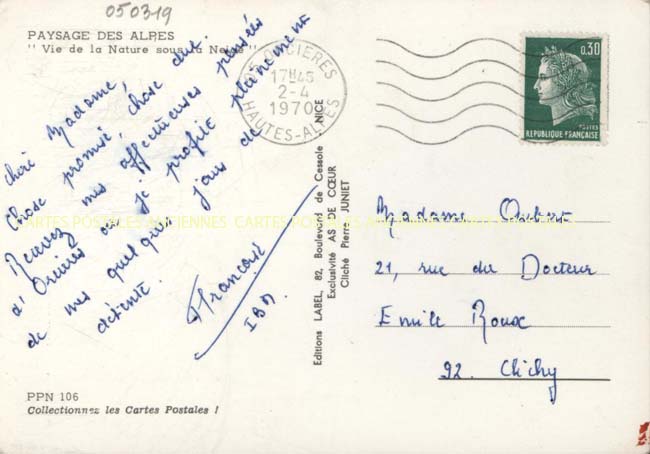 050319
PAYSAGE DES ALPES
" Vie de la Nature sous la Neige "
chère Madame,
Chose promise, chose due.
Recevez mes affectueuses pensées
d'Orcières où je profite pleinement
de mes quelques jours de
détente.
Françoise
IBM.
PPN 106
Collectionnez les Cartes Postales !
05 ORCIERES
17H45
2-4
1970
HAUTES-ALPES
Editions LABEL, 82, Boulevard de Cessole NICE
Exclusivité AS DE CŒUR
Cliché Pierre JUNIET
0,30
POSTES
REPUBLIQUE FRANÇAISE
Madame Aubert
21, rue du Docteur
Emile Roux
92. Clichy
CARTES POSTALES ANCIENNES CARTES POSTALES ANCIENNES CARTES POSTALES